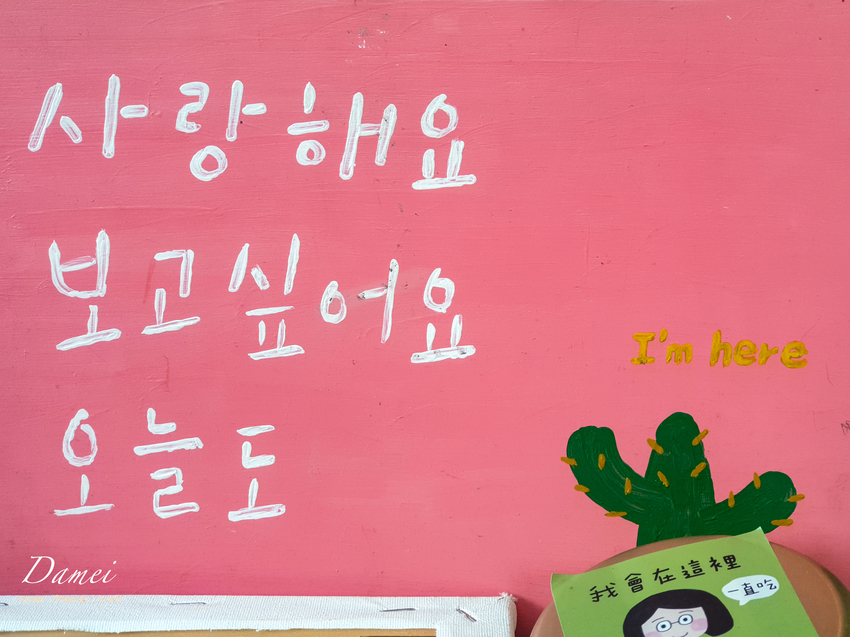 사랑해요
보고싶어요
오늘도
I'm here
Damei
我會在這裡
一直吃